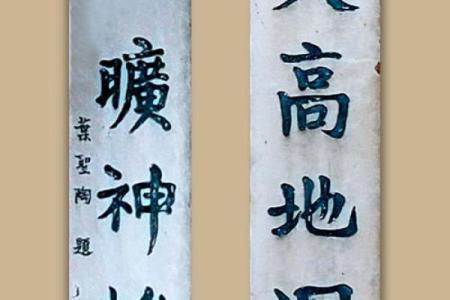 高地
曠神
葉聖陶題